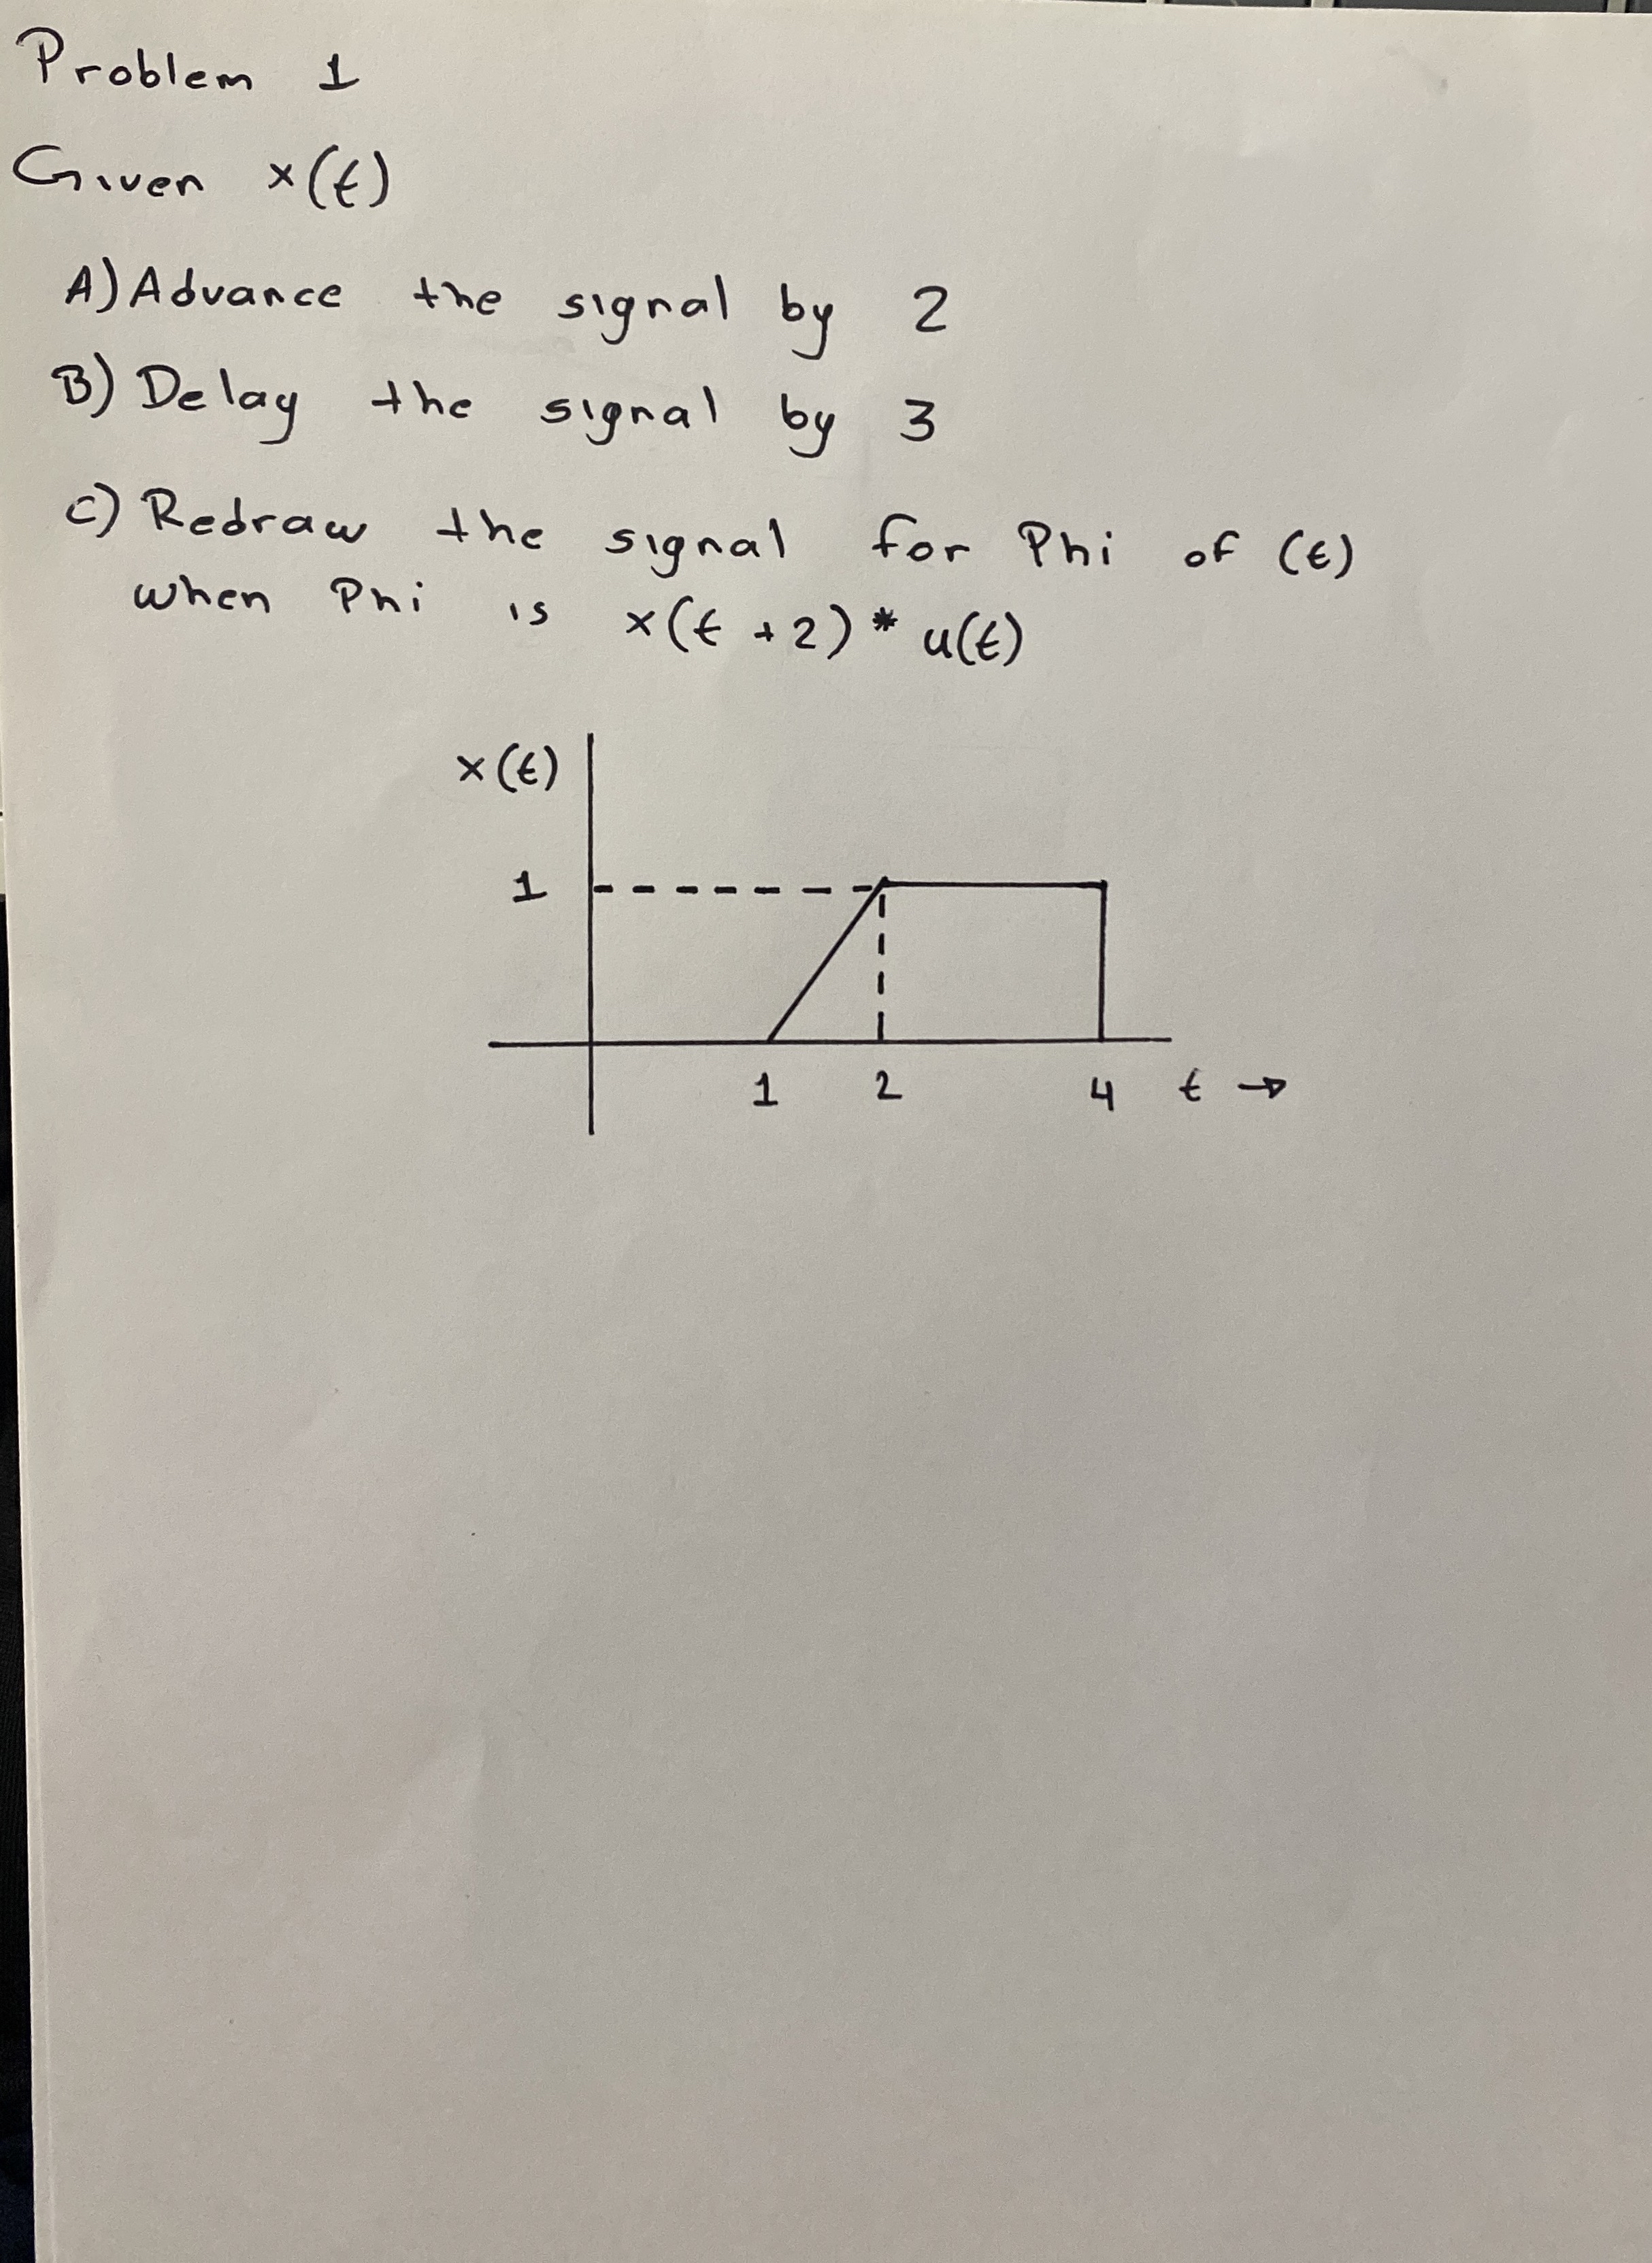 Problem 1
Given x(t)
A) Advance the signal by 2
B) Delay the signal by 3
C) Redraw the signal for Phi of (t)
when Phi is x(t + 2) * u(t)
x(t)
1
1 2 4 t →